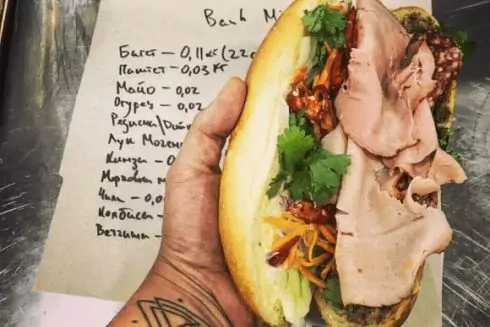 Банh Ми
Багет — 0,11кг (22с
Паштет — 0,03 кг
Майо — 0,02
Огурец — 0,02
Редиска/Дайк
Лук
Кинза — 0
Морковка м
Чили — 0,0
Колбаса
Ветчина —